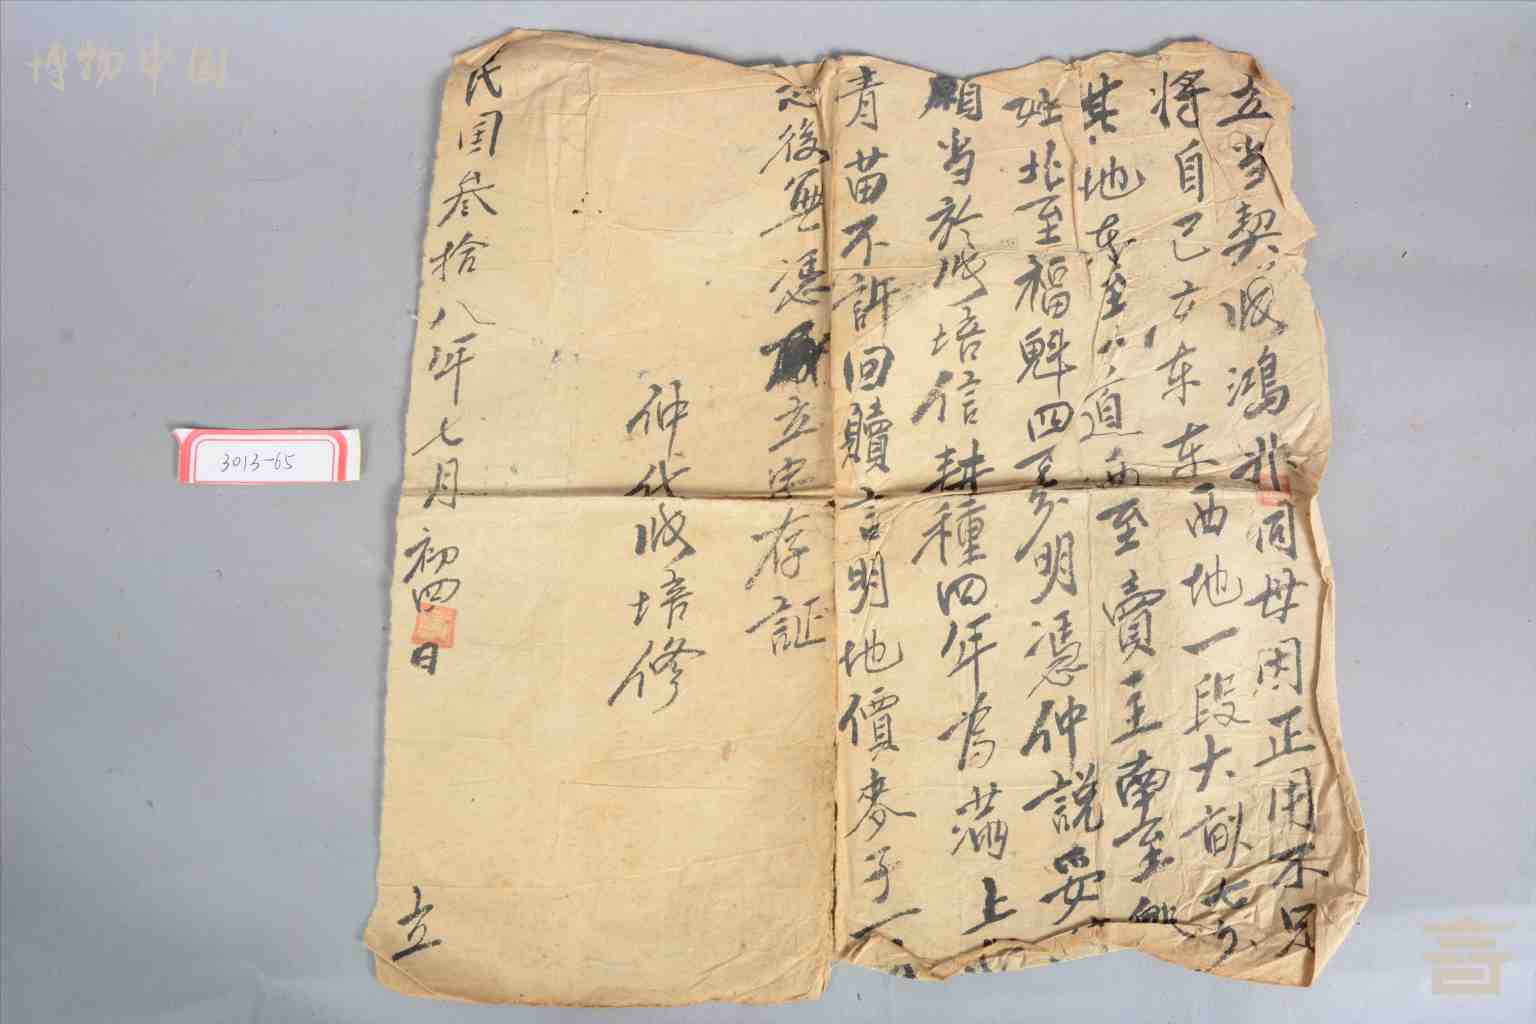 立当契人成鴻非同母因正用不足
將自己立东东西地一段大畝
其地东至小道西至賣主南至
姓北至福魁四至分明憑仲説妥
願当於成培信耕種四年為滿上
青苗不許回贖言明地價麥子一
恐後無憑立字存証
仲代成培修
民国叁拾八年七月初四日
立
3013-65
博物中国